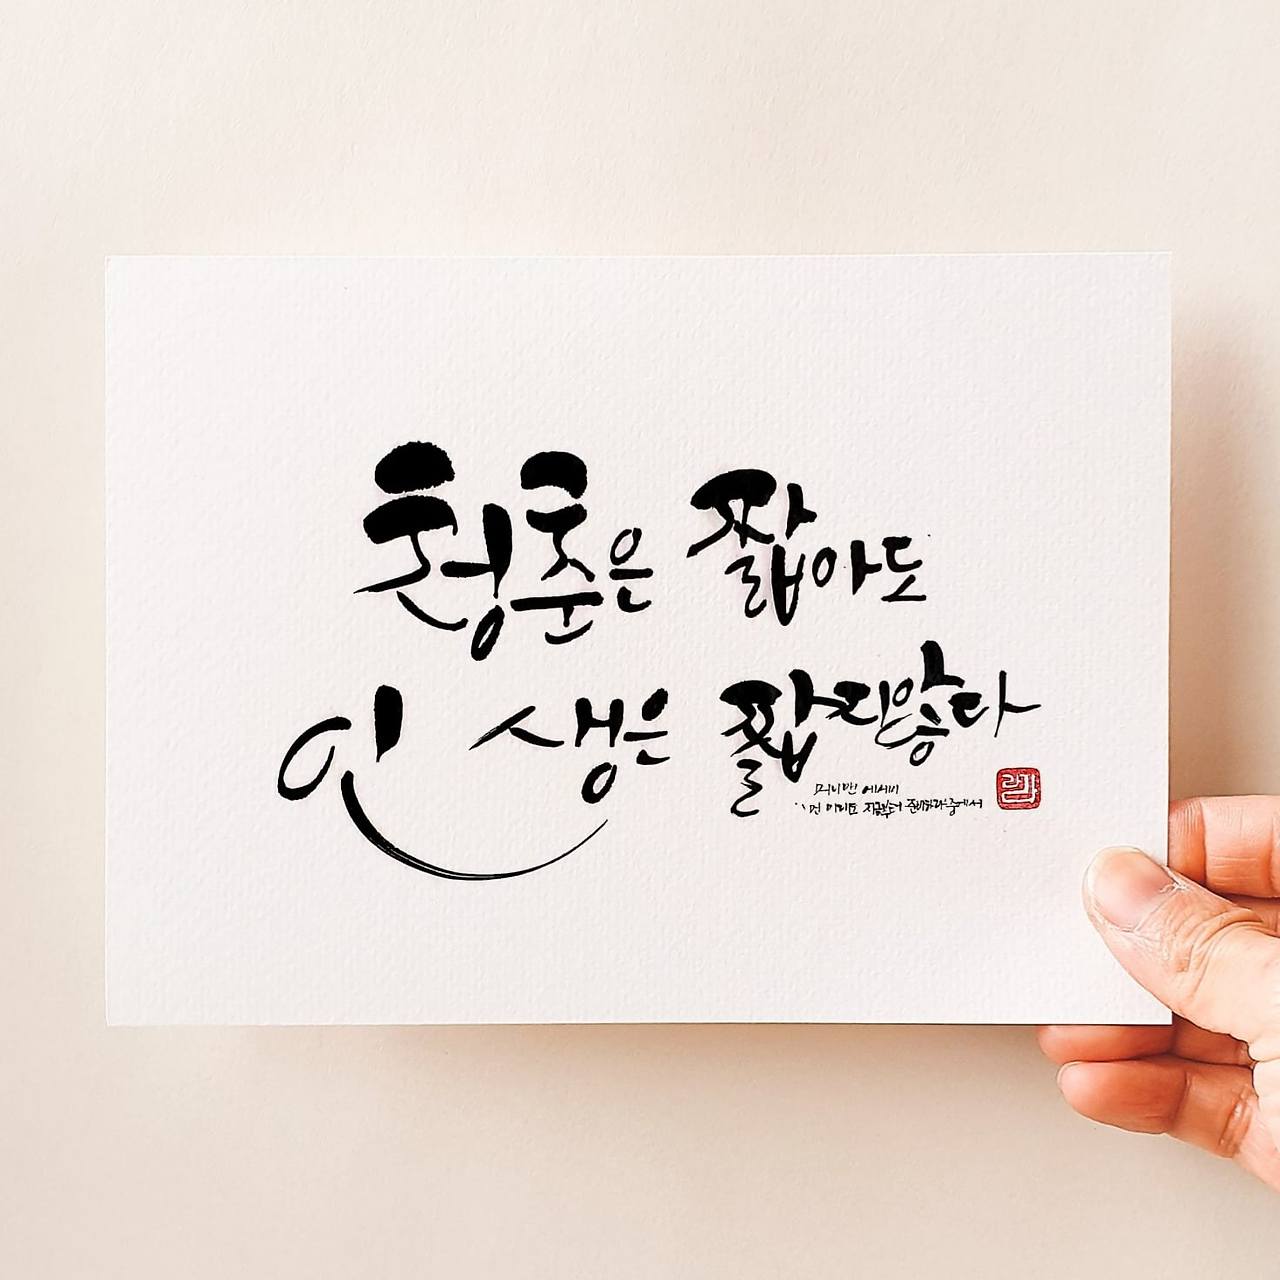 청춘은 짧아도
인생은 짧지않다
에세이
지금부터 준비하라 중에서